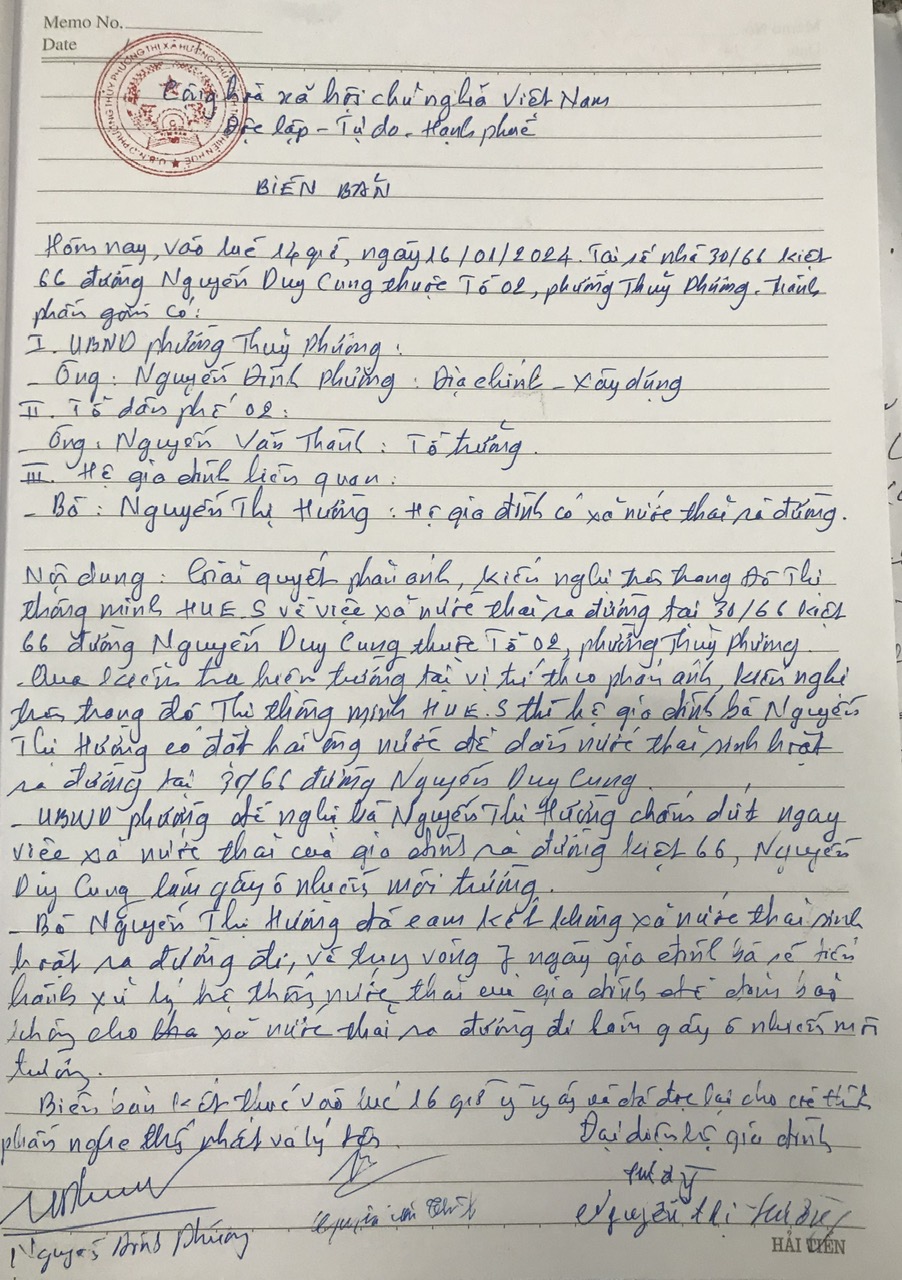 Memo No.
Date
U.B.N.D PHƯỜNG THỦY PHƯƠNG THỊ XÃ HƯƠNG THỦY
Cộng hoà xã hội chủ nghĩa Việt Nam
Độc lập - Tự do - Hạnh phúc
BIÊN BẢN
Hôm nay, vào lúc 14 giờ, ngày 16/01/2024. Tại số nhà 30/66 kiệt
66 đường Nguyễn Duy Cung thuộc Tổ 02, phường Thuỷ Phương. Thành
phần gồm có:
I. UBND phường Thuỷ Phương:
- Ông: Nguyễn Đình Phương: Địa chính - Xây dựng
II. Tổ dân phố 02:
- Ông: Nguyễn Văn Thành: Tổ trưởng.
III. Hộ gia đình liên quan:
- Bà: Nguyễn Thị Hường: Hộ gia đình có xả nước thải ra đường.
Nội dung: Giải quyết phản ánh, kiến nghị trên trang Đô Thị
thông minh HUE.S về việc xả nước thải ra đường tại 30/66 kiệt
66 đường Nguyễn Duy Cung thuộc Tổ 02, phường Thuỷ Phương.
- Qua kiểm tra hiện trường tại vị trí theo phản ánh, kiến nghị
trên trang đô Thị thông minh HUE.S thì hộ gia đình bà Nguyễn
Thị Hường có đặt hai ống nước để dẫn nước thải sinh hoạt
ra đường tại 30/66 đường Nguyễn Duy Cung.
- UBND phường đề nghị bà Nguyễn Thị Hường chấm dứt ngay
việc xả nước thải của gia đình ra đường kiệt 66, Nguyễn
Duy Cung làm gây ô nhiễm môi trường.
- Bà Nguyễn Thị Hường đã cam kết không xả nước thải sinh
hoạt ra đường đi, và trong vòng 7 ngày gia đình bà sẽ tiến
hành xử lý hệ thống nước thải của gia đình để đảm bảo
không cho xả nước thải ra đường đi làm gây ô nhiễm môi
trường.
Biên bản kết thúc vào lúc 16 giờ cùng ngày và đã đọc lại cho các thành
phần nghe thống nhất và ký tên.
Đại diện hộ gia đình
Nguyễn Đình Phương
Nguyễn Văn Thành
Nguyễn Thị Hường
HẢI TIẾN